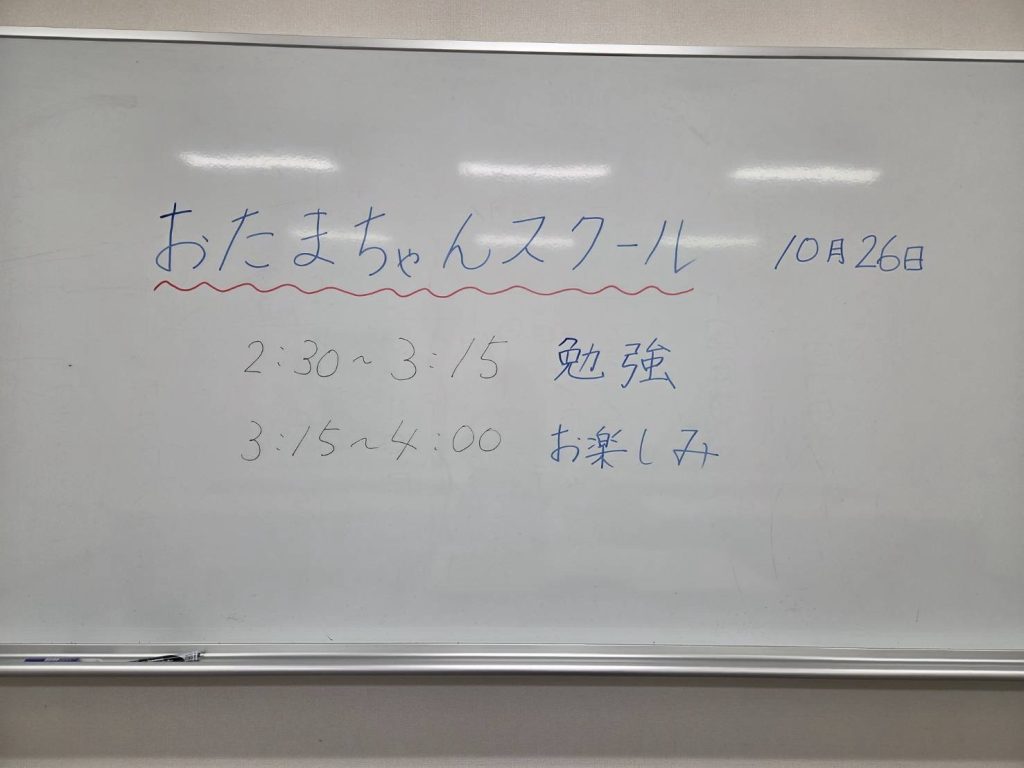 おたまちゃんスクール 10月26日
2:30～3:15 勉強
3:15～4:00 お楽しみ